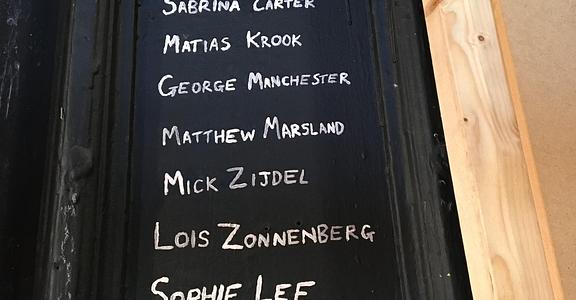 SABRINA CARTER
MATIAS KROOK
GEORGE MANCHESTER
MATTHEW MARSLAND
MICK ZIJDEL
LOIS ZONNENBERG
SOPHIE LEE